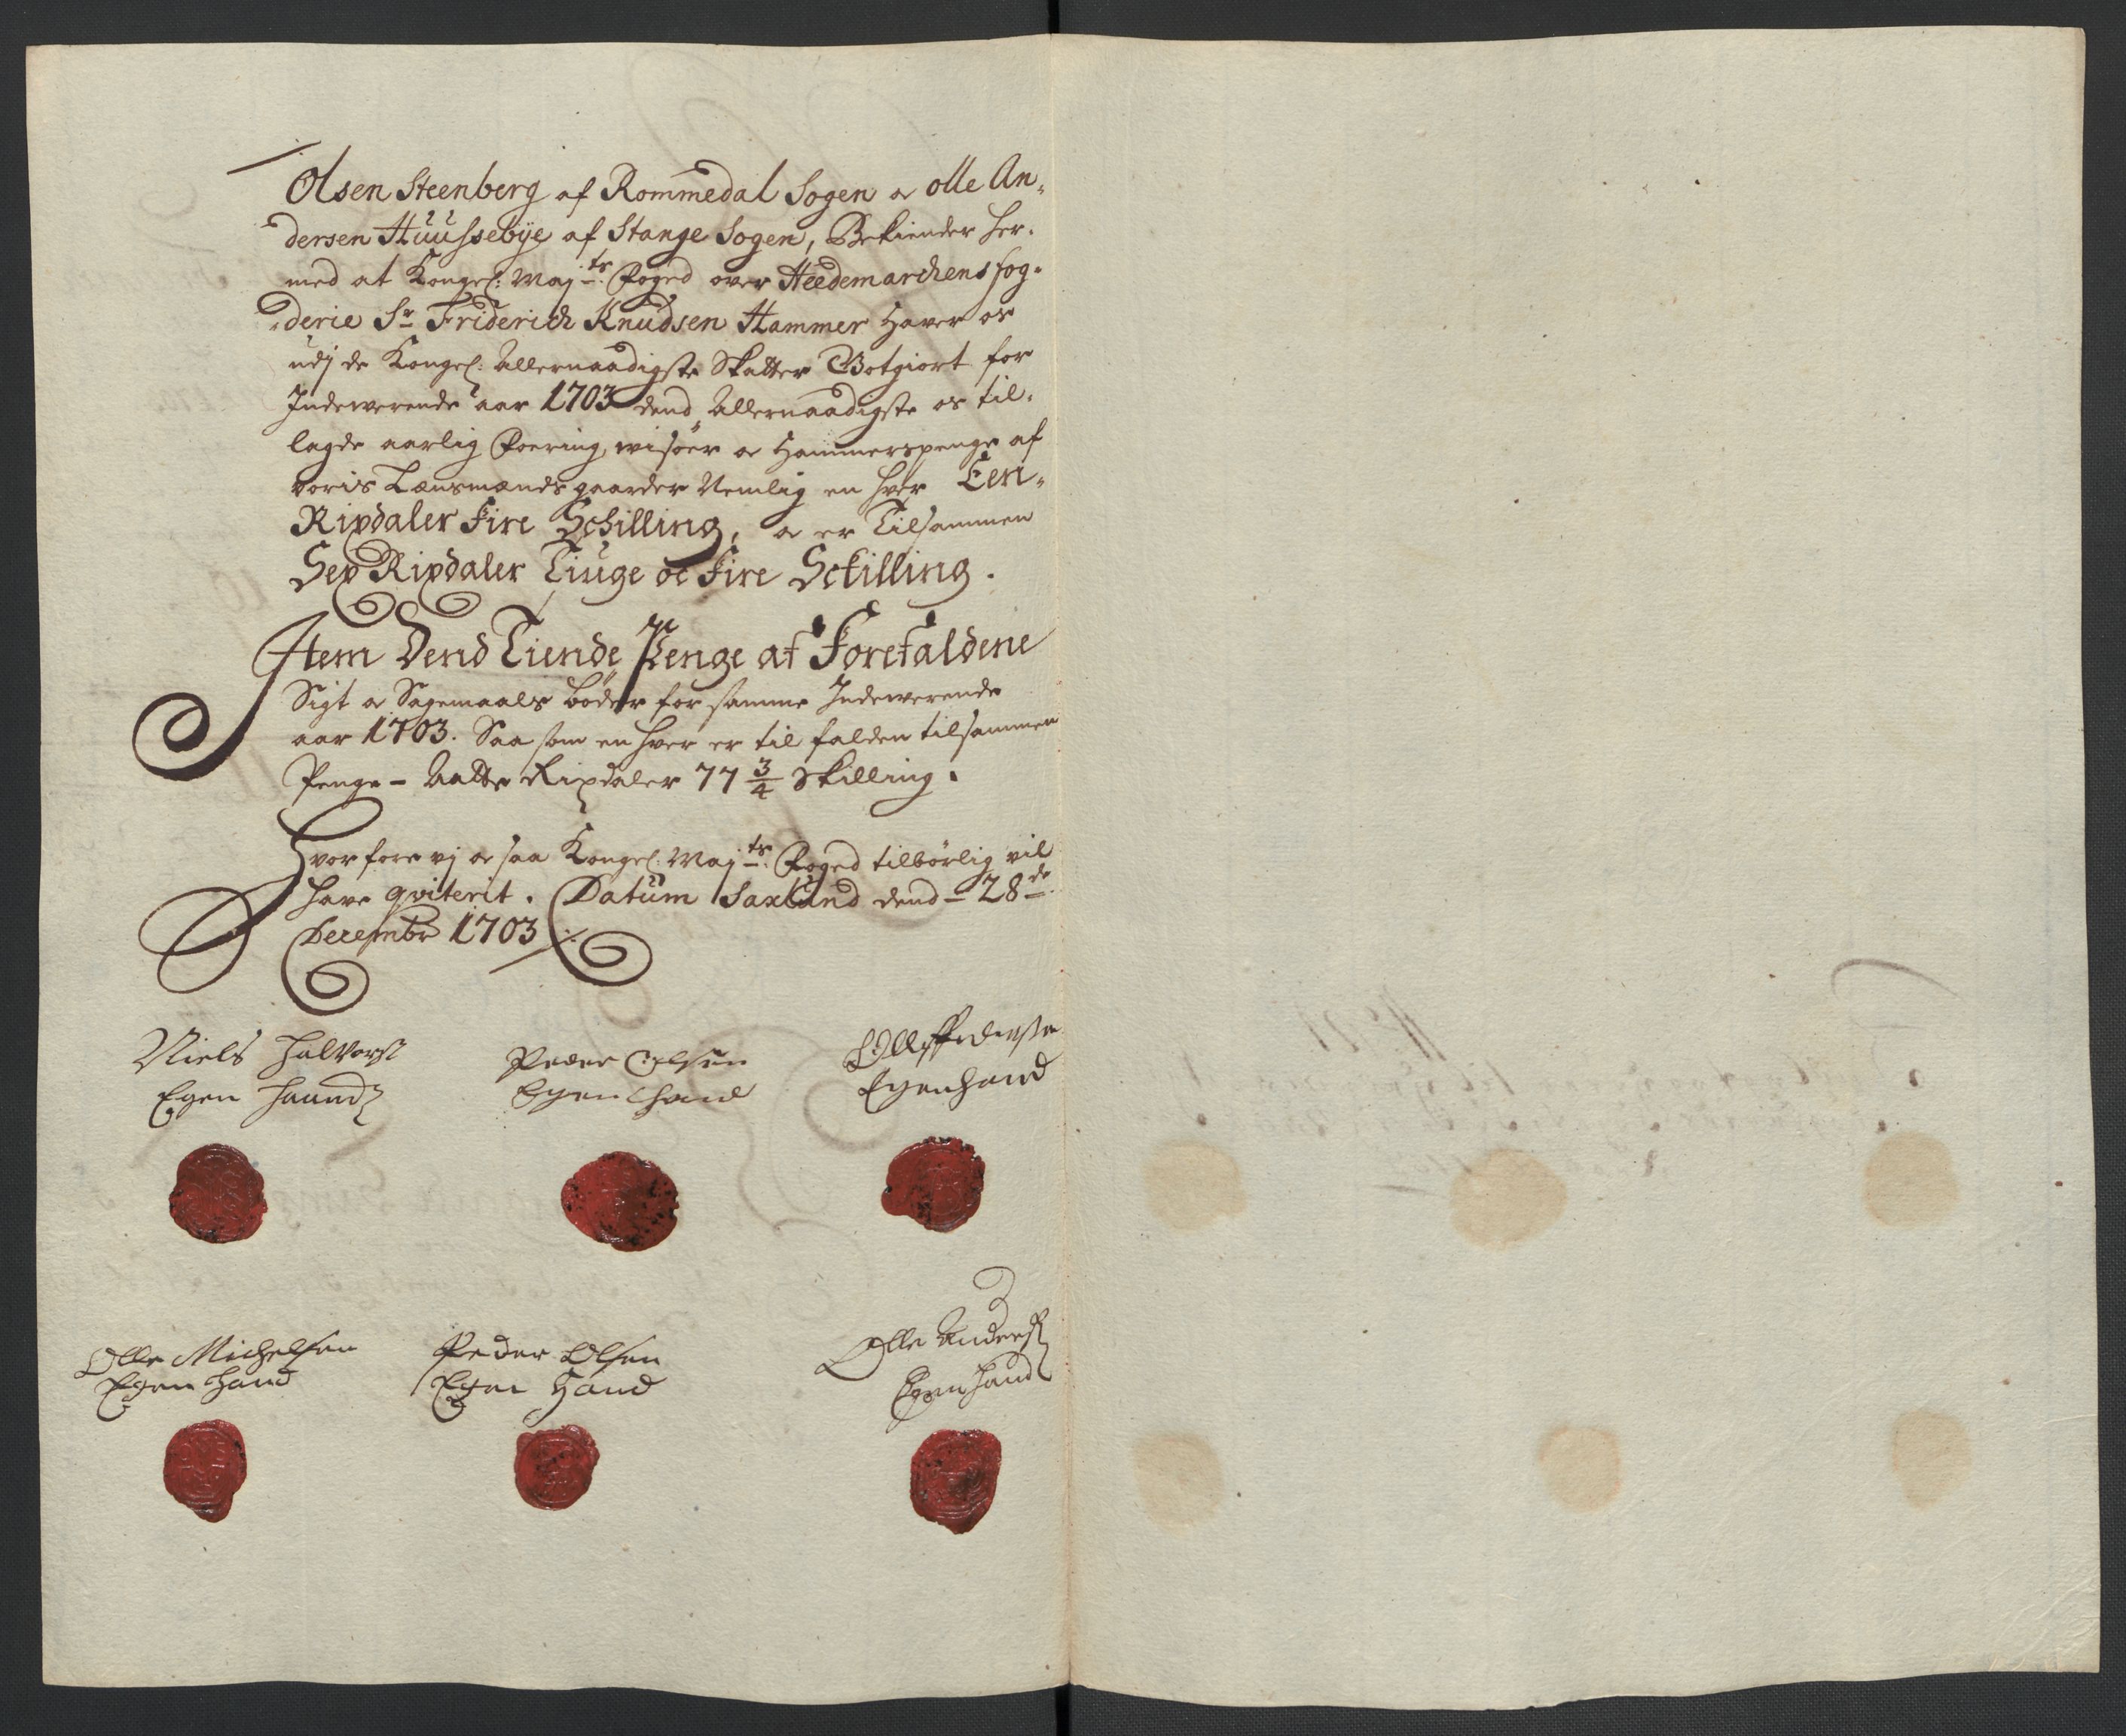 Olsen Steenberg af Rommedal Sogen oc olle An-
dersen Huussebÿe af Stange Sogen, Bekiender her-
med at Kongel: Maj:ts Foged over Heedemarckens fog-
derie Sr Friderich Knudsen Hammer Haver os
udj de Kongel: Allernaadigste Skatter Botgiort for
Indeverende aar 1703 dend Allernaadigste os til-
lagde aarlig Foering, wisöer oc Hammerspenge af
voris Lænsmænds gaarder Nemlig en hver Een-
Rixdaler Fire Schilling, oc er Tilsammen
Sex Rixdaler Tiuge oc Fire Schilling.
Item Dend Tiende Penge af Forefaldene
Sigt oc Sagemaals böder for samme Indeverende
aar 1703. Saa som en hver er til falden tilsammen
Penge - Aatte Rixdaler 77 3/4 Skilling.
Hvorfore vj oc saa Kongel: Maj:ts Foged tilbörlig vil
have qviterit. Datum Saxlund dend - 28de
Decembr 1703 ./.
Niels Halvors:
Egen Haand
Peder Olsen
Egen Hand
Olle Pedersen
Egenhand
Olle Michelsen
Egen hand
Peder Olsen
Egen Hand
Olle Anders:
Egen Hand